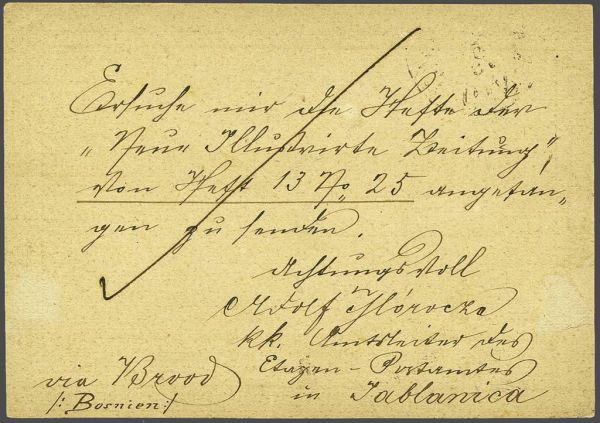 Ersuche mir die Hefte der
„Neue Illustrirte Zeitung"
von Heft 13 No 25 angefan„
gen zu senden.
Achtungsvoll
Adolf
kk. Amtsleiter des
Etapen - Postamtes
in Jablanica
via Brood
/: Bosnien :/